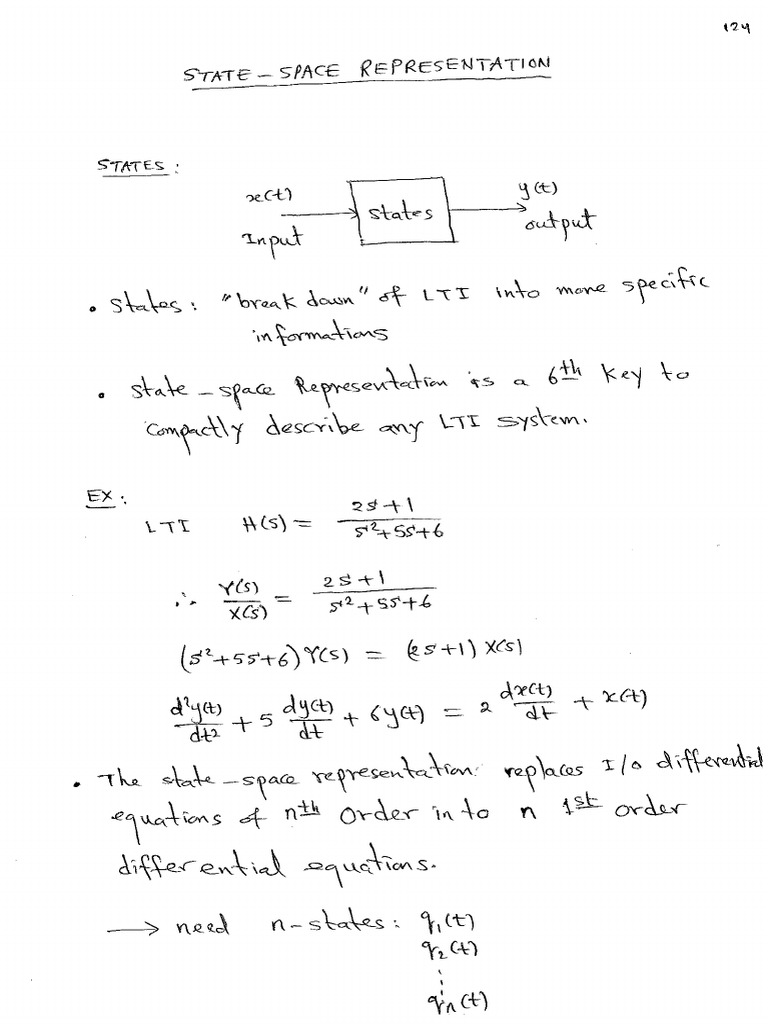 124
STATE - SPACE REPRESENTATION
STATES :
x(t) y(t)
states
Input output
• States : "break down" of LTI into more specific
informations
• State - space Representation is a 6th key to
compactly describe any LTI system.
EX :
LTI H(s) = (2s+1)/(s²+5s+6)
∴ Y(s)/X(s) = (2s+1)/(s²+5s+6)
(s²+5s+6) Y(s) = (2s+1) X(s)
d²y(t)/dt² + 5 dy(t)/dt + 6y(t) = 2 dx(t)/dt + x(t)
• The state - space representation replaces I/O differential
equations of nth Order in to n 1st order
differential equations.
→ need n-states : q₁(t)
q₂(t)
⋮
qn(t)